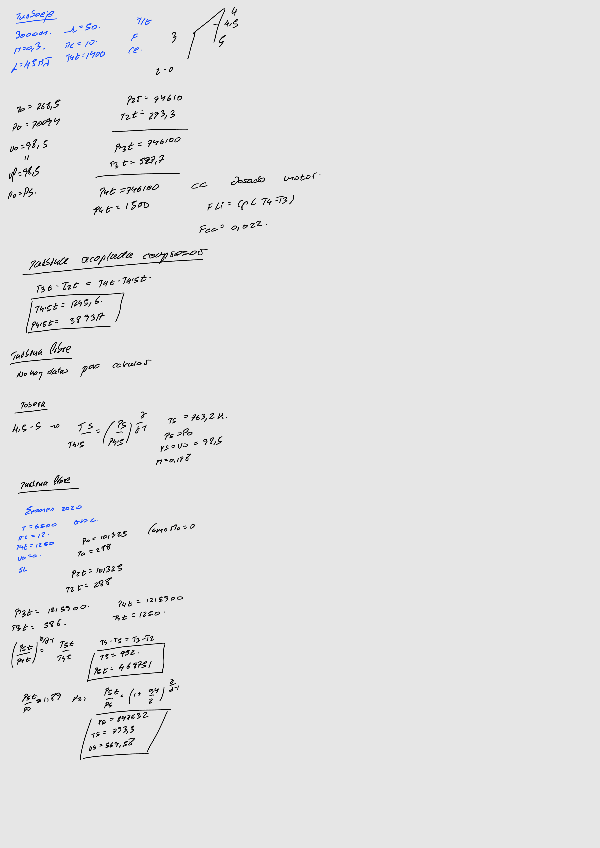 3000m.
M=0,3.
L=43MJ
πc=10.
T4t=1400
F
ce
3
4
4,5
5
T0 = 268,5
P0 = 70094
U0=98,5
"
U5=98,5
P0=P5.
P2t= 74610
T2t= 273,3
P3t= 746100
T3t= 527,7
P4t=746100
P4t= 1500
CC Dosado motor.
F Li = Cp( T4-T3)
Fcc = 0,022.
Turbina acoplada compresor
T3t - T2t = T4t - T4,5t.
T4,5t= 1245,6.
P4,5t= 389317
Turbina libre
No hay datos para calculos
Tobera
4,5-5 → T5/T4,5 = (P5/P4,5)^γ/γ-1
T5 = 763,2 K.
P5=P0
V5=U0 = 98,5
M=0,178
Turbina libre
Examen 2020
T=6500
πc=12.
T4t=1250
U0=0.
SL
P0= 101325
T0= 288
Como M0=0
P2t= 101325
T2t= 288
P3t= 1215900.
T3t= 586.
P4t= 1215900
T4t=1250.
(P5t/P4t)^γ/γ-1 = T5t/T4t
T4-T5 = T3-T2
T5= 952.
P5t= 469751
P5t/P0
P5t/P5 = (1+ γ-1/2)^γ/γ-1
T5= 793,3
U5=564,58